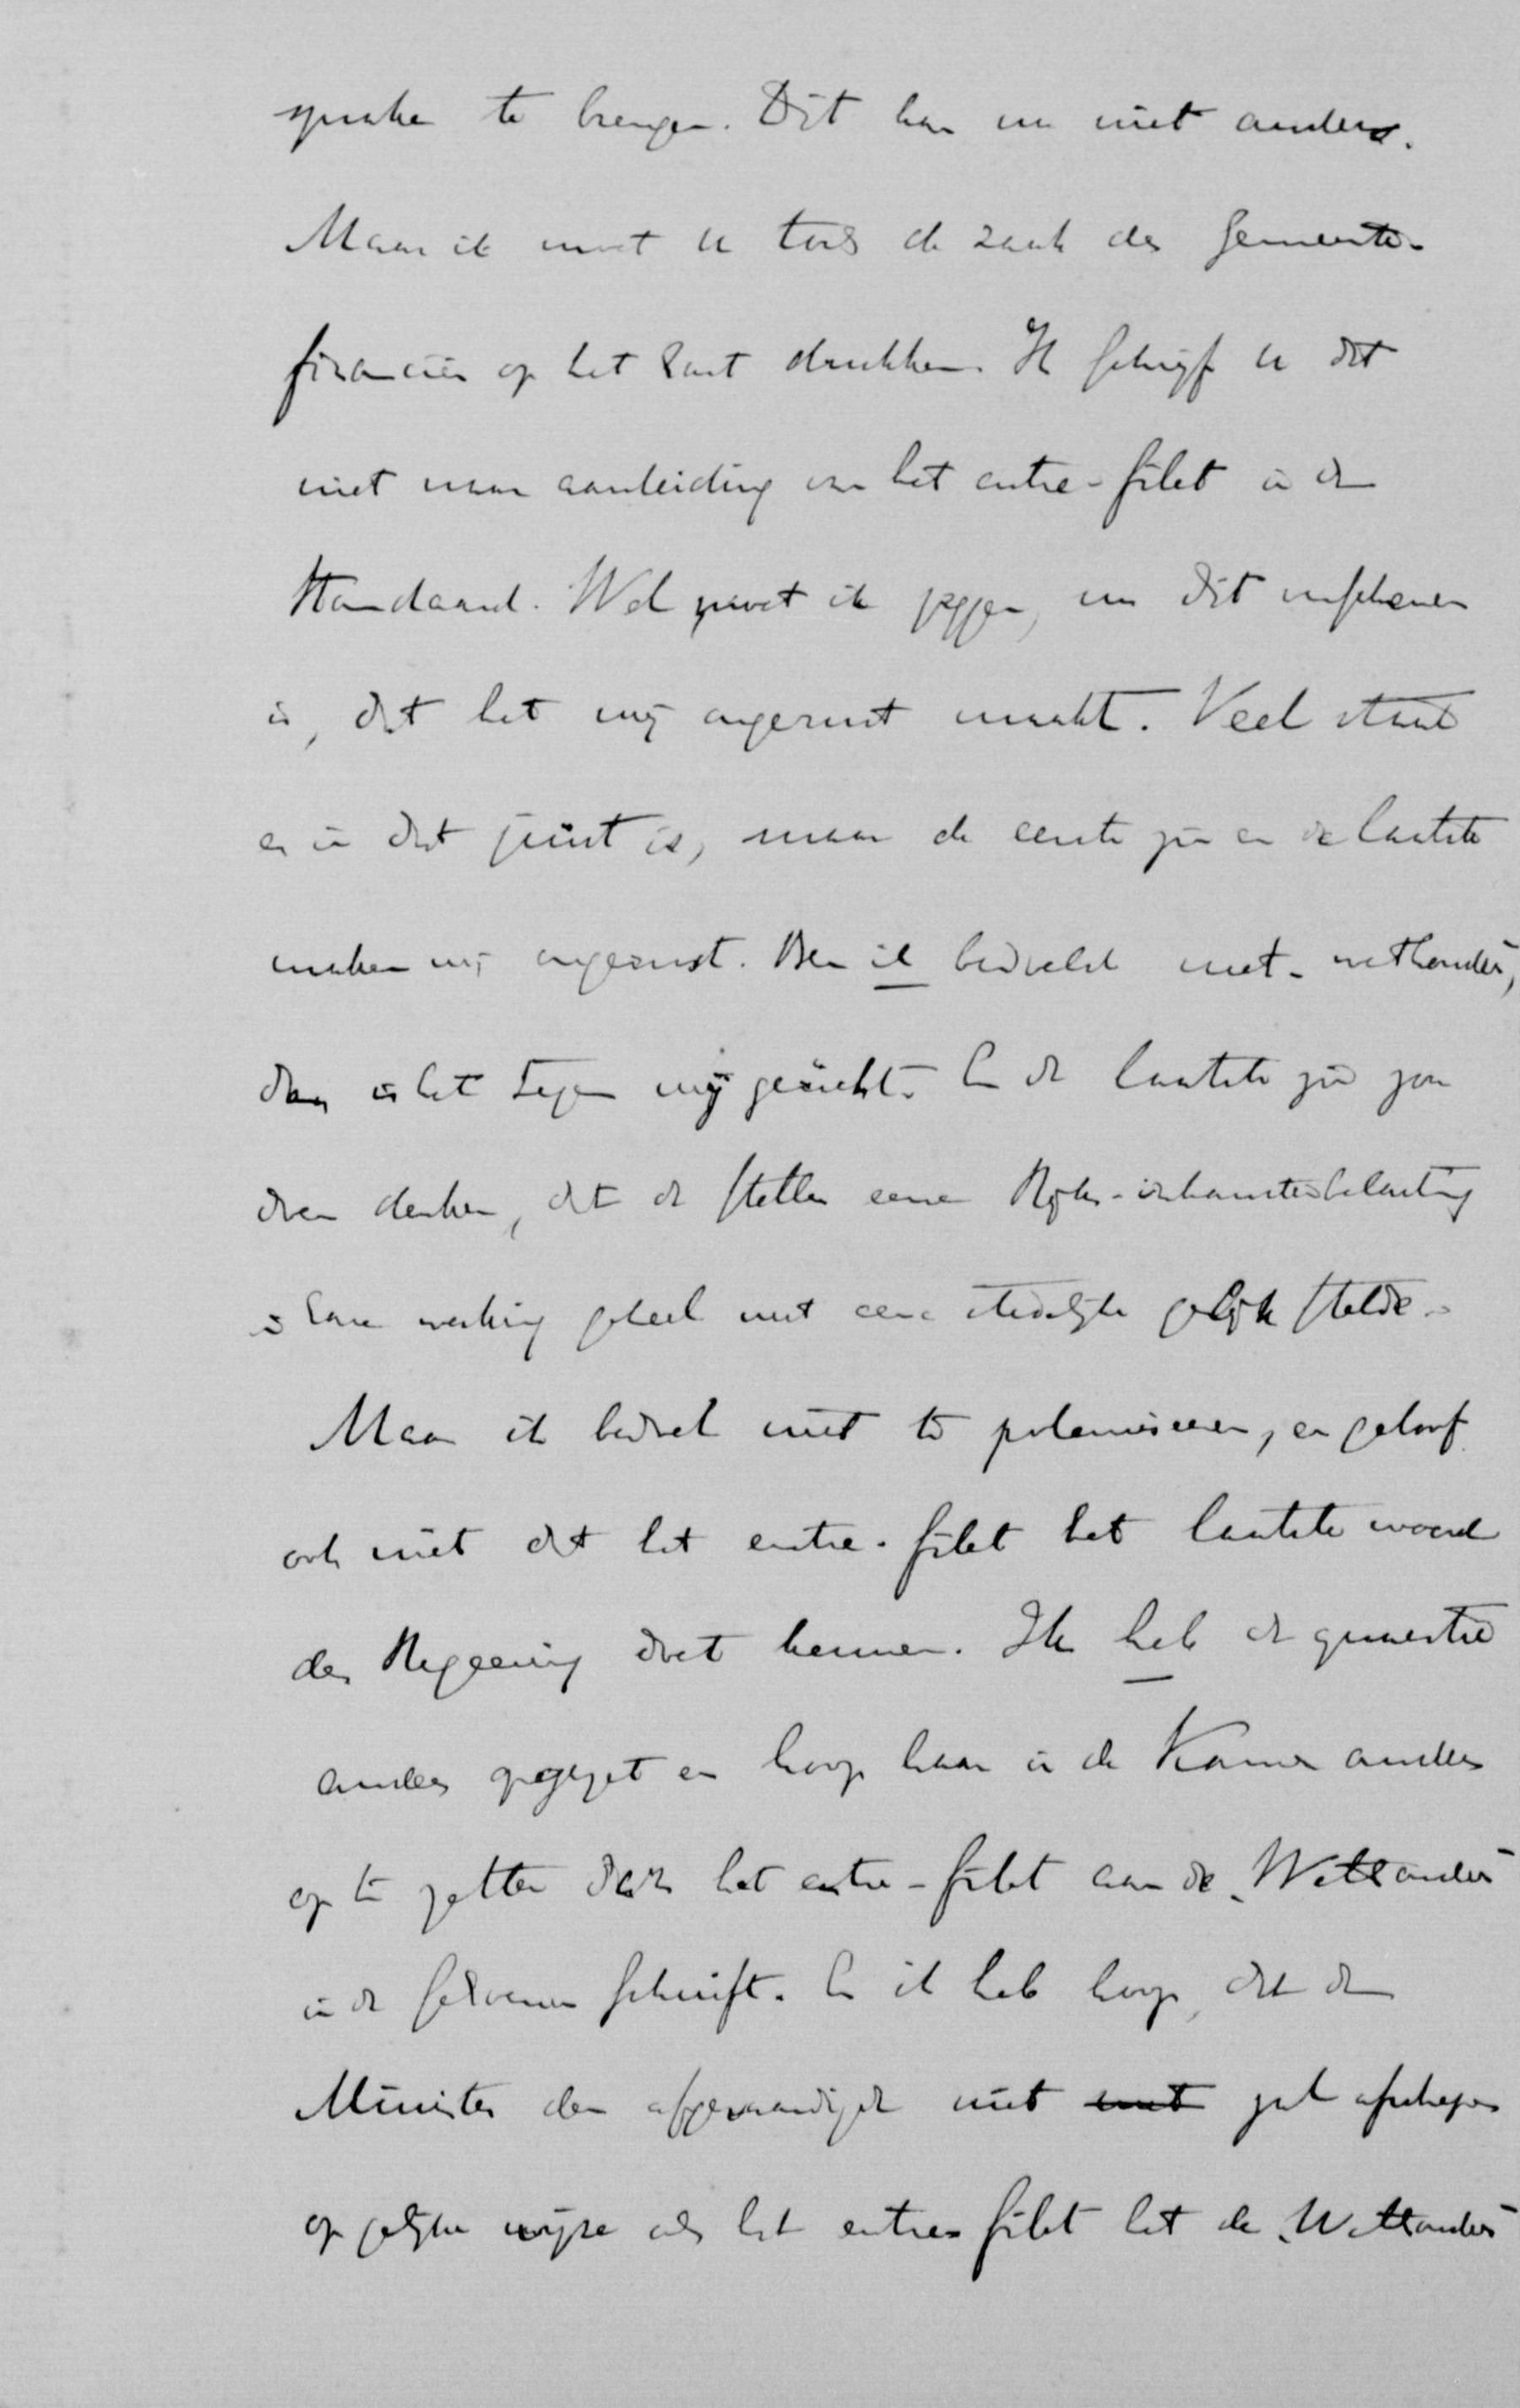 sprake te brengen. Dit kan nu niet anders.
Maar ik moet u toch de zaak der gemeente-
financiën op het hart drukken. Ik schrijf u dit
niet naar aanleiding van het entre-filet in de
Standaard. Wel moet ik zeggen, nu dit verschenen
is, dat het mij ongerust maakt. Veel staat
er in dat juist is, maar de eerste zin en de laatste
maken mij ongerust. Ben ik bedoeld met - wethouder",
dan is het tegen mij gericht. En de laatste zin zou
doen denken, dat de steller eene Rijks-inkomstenbelasting
in hare werking geheel met eene stedelijke gelijk stelde.
Maar ik bedoel niet te polemiseeren, en geloof
ook niet dat het entre-filet het laatste woord
der Regeering doet kennen. Ik heb de quaestie
anders opgezet en hoop haar in de Kamer anders
op te zetten dan het entre-filet aan de "Wethouder"
in de schoenen schuift. En ik heb hoop, dat de
Minister den afgevaardigde niet zal afschepen
op gelijke wijze als het entre-filet het de "Wethouder"